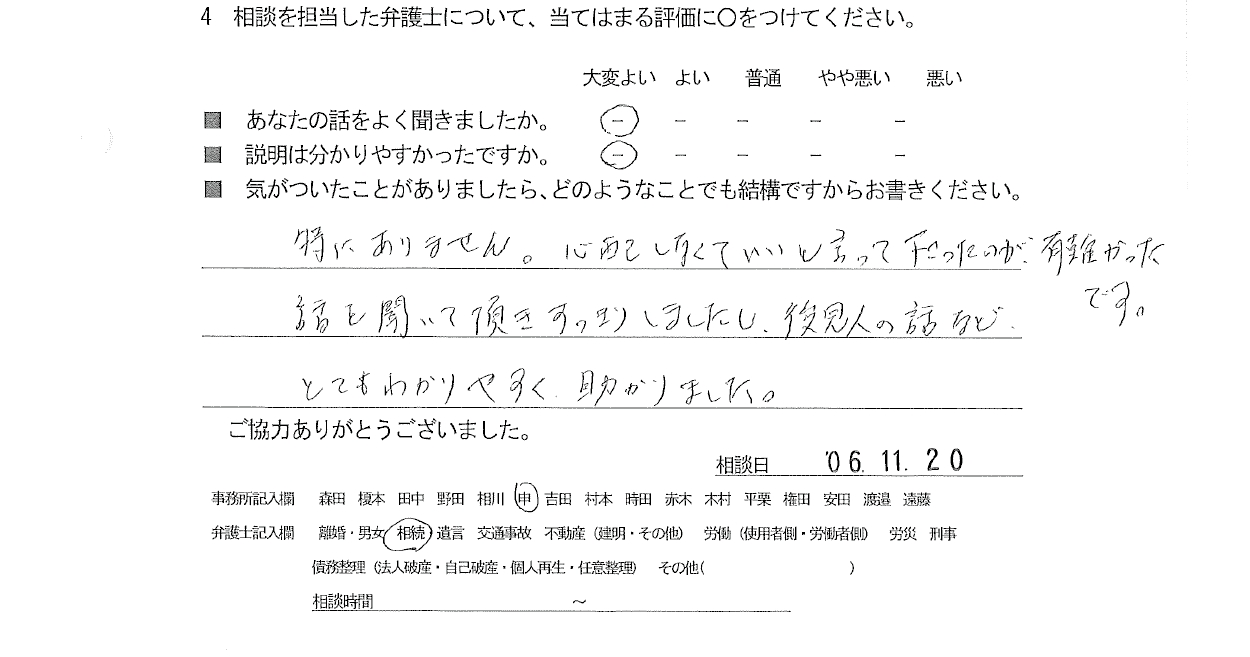 4 相談を担当した弁護士について、当てはまる評価に○をつけてください。
大変よい よい 普通 やや悪い 悪い
■ あなたの話をよく聞きましたか。 － － － － －
■ 説明は分かりやすかったですか。 － － － － －
■ 気がついたことがありましたら、どのようなことでも結構ですからお書きください。
特にありません。心配しなくていいと言って下さったのが、有難かった
です。
話を聞いて頂きすっきりしましたし、後見人の話など、
とてもわかりやすく、助かりました。
ご協力ありがとうございました。
相談日 '06.11.20
事務所記入欄 森田 榎本 田中 野田 相川 申 吉田 村本 時田 赤木 木村 平栗 権田 安田 渡邉 遠藤
弁護士記入欄 離婚・男女 相続・遺言 交通事故 不動産（建明・その他） 労働（使用者側・労働者側） 労災 刑事
債務整理（法人破産・自己破産・個人再生・任意整理） その他( )
相談時間 ～